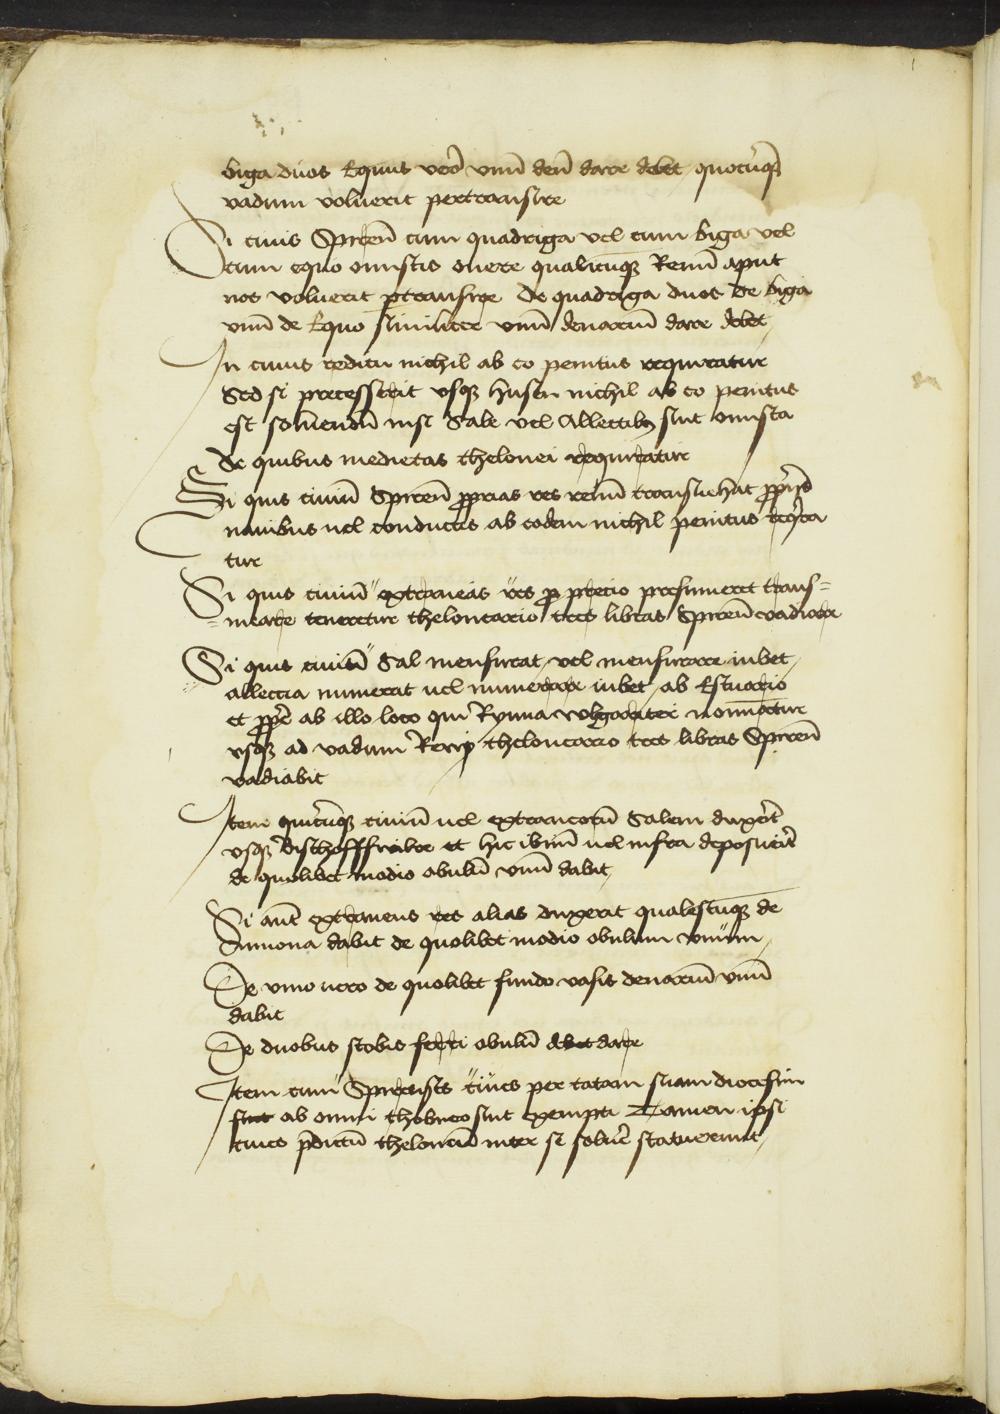 biga duos Equus vero vnū den dare debet quocūqȝ
vadum voluerit pertransire
Si ciuis Spireñ cum quadriga vel cum biga vel
cum equo onustis onere qualicūqȝ Rerum aput
nos voluerit ptransire De quadriga duos De biga
vnū de Equo similiter vnū denariū dare debet
In cuius reditu nichil ab eo penitus requiratur
Sed si processerit vsqȝ husen nichil ab eo penitus
est soluendū nisi Sale vel Allectibȝ sint onusta
De quibus medietas thelonei requiratur
Si quis ciuiū Spireñ pprias res rerum transuehat pprijs
nauibus uel conductis ab eodem nichil penitus reqira
tur
Si quis ciuiū extraneas res p precio presumeret trans=
=meare teneretur theloneario tres libras Spireñ vadiare
Si quis ciuiū Sal mensurat, vel mensurare iubet,
allectia numerat uel numerare iubet, ab Estuario
et ppe ab illo loco qui Rynna volgariter nominatur
vsqȝ ad vadum Rerip theloneario tres libras Spireñ
vadiabit
Item quicūqȝ ciuiū uel extraneorū Salem duxerit
vsqȝ Bischofffwilre et hic ibinū uel infra deposuerit
de quolibet modio obulū vnū dabit,
Si aut extraneus res alias duxerit qualescūqȝ de
Annona dabit de quolibet modio obulum vnum,
De vino uero de quolibet fundo vasis denariū vnū
dabit
De duobus scobis ferri obulū debet dare
Item cum Spirensis ciues per totam suam diocesim
sint ab omni theloneo sint exempti Tamen ipsi
ciues pdictū theloneū inter se soluere statuerunt,